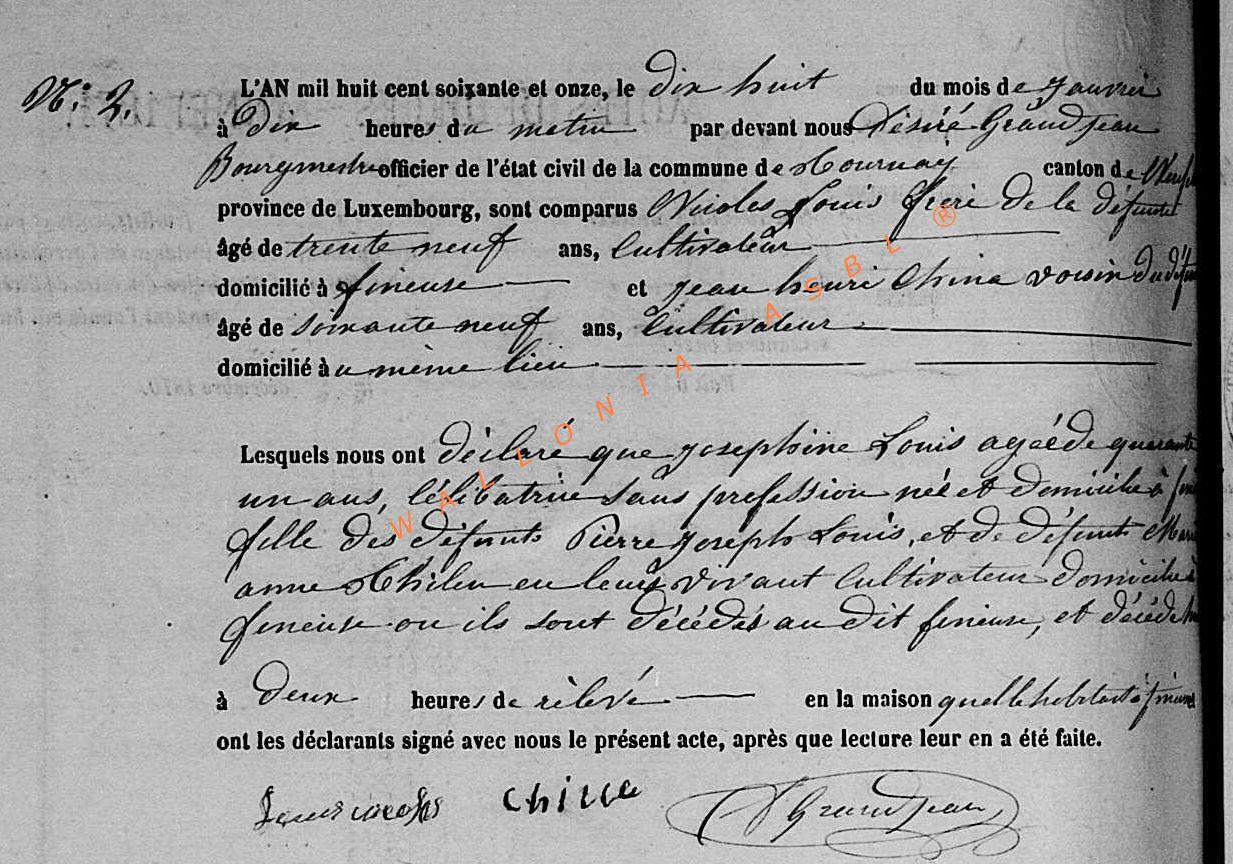 N: 2.
L'AN mil huit cent soixante et onze, le dix huit du mois de janvier
à dix heures du matin par devant nous Désiré Grandjean
Bourgmestre officier de l'état civil de la commune de Tournay canton de
province de Luxembourg, sont comparus Nicolas Louis frère de la défunte
âgé de trente neuf ans, Cultivateur
domicilié à fineuse et jean henri China voisin du
âgé de soixante neuf ans, Cultivateur
domicilié à u même lieu
Lesquels nous ont déclaré que josephine Louis agée de quarante
un ans, célibatrice sans profession née et domicilié à
fille des défunts Pierre joseph Louis, et de défunte
anne en leurs vivant Cultivateur domicilié à
fineuse ou ils sont décédés au dit fineuse, et décédé
à deux heures de rélevé en la maison quelle habitait à
ont les déclarants signé avec nous le présent acte, après que lecture leur en a été faite.
China
Grandjean
WALLONIA ASBL ®